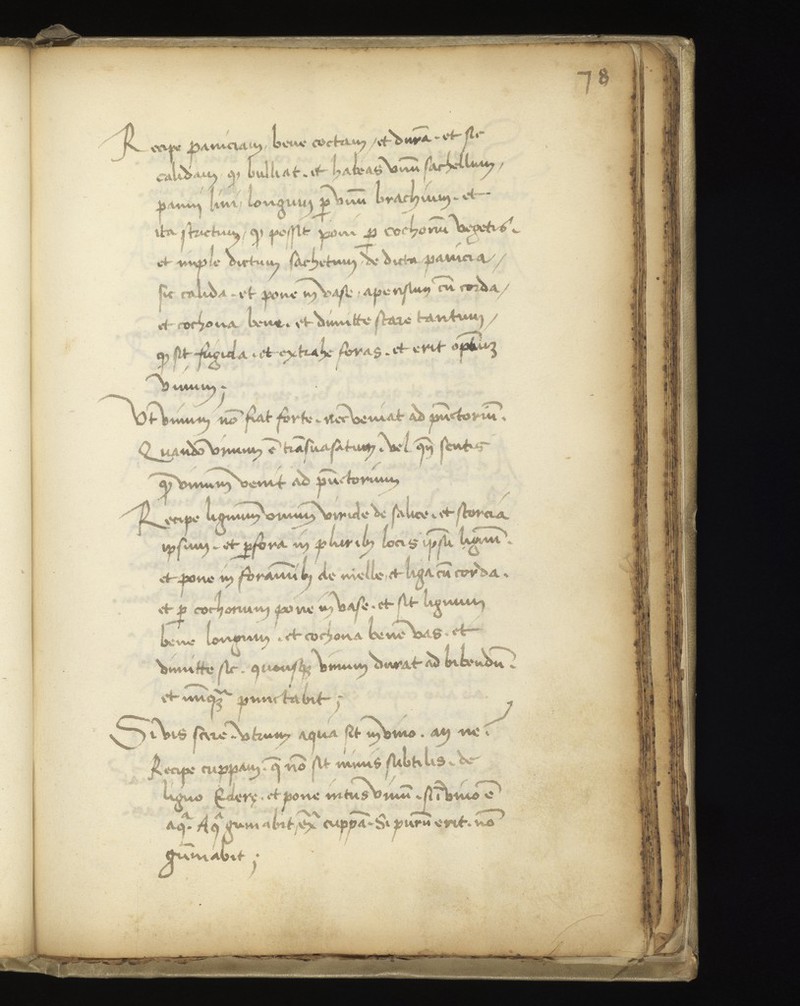 78
Recipe paniciam, bene coctam, et durā. et sic
calidam ꝙ bulliat. et habeas vnū sachellum,
panni lini, longum ꝑ vnū brachium. et
ita strictum, ꝙ possit poni ꝑ cochonū vegetis.
et imple dictum sachetum de dicta panicia,
sic calida. et pone in vase, apensum cū corda,
et cochona bene. et dimitte stare tantum,
ꝙ sit frigida. et extrahe foras. et erit
vinum;
Vt vinum nō fiat forte. nec veniat ad pūctoriū.
Quando vinum ē trāsuasatum. vel qn̄ sentis
ꝙ vinum venit ad pūctorium
Recipe lignum vnum viride de salice. et scorcia
ipsum. et ꝑfora in pluribꝫ locis ipsū lignū.
et pone in foraminibꝫ de melle, et liga cū corda.
et ꝑ cochonum pone in vase. et sit lignum
bene longum. et cochona bene vas. et
dimitte sic. quousqꝫ vinum durat ad bibendū.
et nūqꝫ̄ punctabit;
Si vis scire. vtrum aqua sit in vino. an ne.
Recipe cuppam. q̄ nō sit nimis subtilis. de
ligno Ederę. et pone intus vinū. si ī vino ē
aqꝰ. Aqꝰ gumabit ex̄ cuppā. Si purū erit. nō
gūmabit;